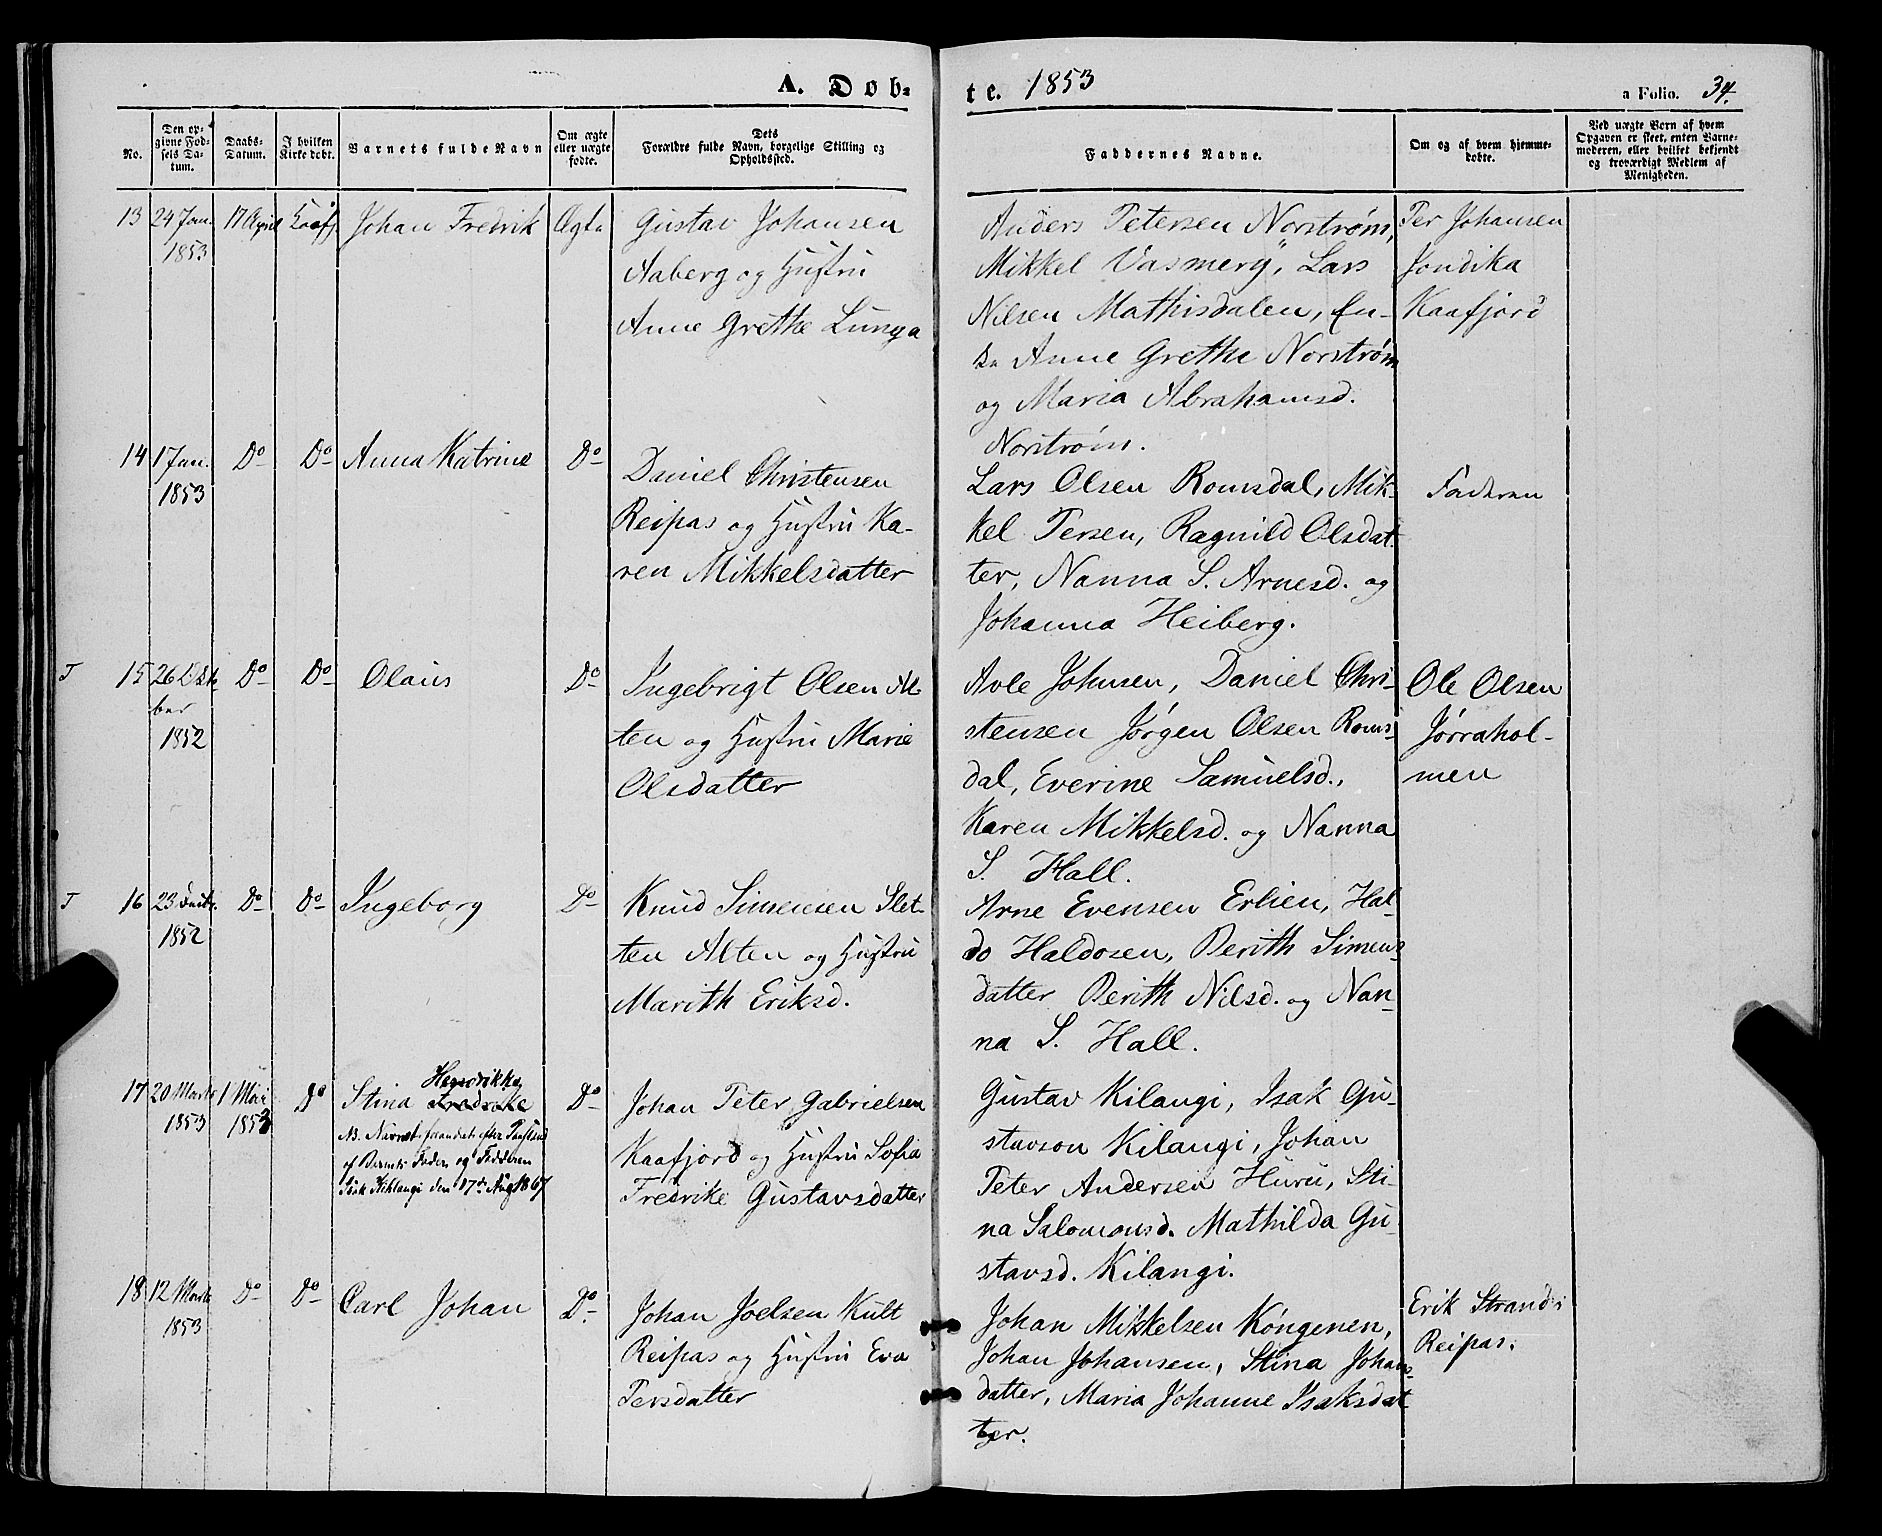 A. Døb-
te. 1853
a Folio. 34.
No.
Den op-
givne Fød-
sels Da-
tum.
Daabs-
Datum.
I hvilken
Kirke døbt.
Barnets fulde Navn
Om ægte
eller uægte
fødte.
Dets
Forældre fulde Navn, borgelige Stilling og
Opholdssted.
Faddernes Navne.
Om og af hvem hjemme-
døbte.
Ved uægte Børn af hvem
Opgaven er skeet, enten Barne-
moderen, eller hvilket bekjendt
og troværdigt Medlem af
Menigheden.
13 24 Jan. 17 April Kaafj Johan Fredrik Ægte
1853
Gustav Johansen
Aaberg og Hustru
Anne Grethe Lunga
Anders Petersen Norstrøm,
Mikkel Lars
Nilsen Mathisdalen, En-
ke Anne Grethe Norstrøm
og Maria Abrahamsd.
Norstrøm.
Per Johansen
Jondika
Kaafjord
14 1 Jan. Do Do Anna Katrine Do
1853
Daniel Christensen
Reipas og Hustru Ka-
ren Mikkelsdatter
Lars Olsen Romsdal, Mik-
kel Persen, Ragnild Olsdat-
ter, Nanna S. Arnesd. og
Johanna Heiberg.
Faderen
T 15 26 Do Do Olaus Do
ber
1852
Ingebrigt Olsen Al-
ten og Hustru Marie
Olsdatter
Avle Johnsen, Daniel Chri-
stensen Jørgen Olsen Roms-
dal, Everine Samuelsd.,
Karen Mikkelsd. og Nanna
S. Hall.
Ole Olsen
Jørrahol-
men
T 16 23 Do Do Ingeborg Do
1852
Knud Simensen Slet-
ten Alten og Hustru
Marith Eriksd.
Arne Evensen Erlien, Hal-
do Haldosen, Berith Simens-
datter Berith Nilsd. og Nan-
na S. Hall.
17 20 Marts 1 Mai Do Stina Fredrike Hendrikka Do
1853 1853
NB. Navnet forandret efter
af Barnets Fader og Fadderen
Isak Kihlangi den 17de Aug 1867
Johan Peter Gabrielsen
Kaafjord og Hustru Sofia
Fredrike Gustavsdatter
Gustav Kilangi, Isak Gu-
stavson Kilangi, Johan
Peter Andersen Huru, Sti-
na Salomonsd. Mathilda Gu-
stavsd. Kilangi.
18 12 Marts Do Do Carl Johan Do
1853
Johan Joelsen Kult
Reipas og Hustru Eva
Persdatter
Johan Mikkelsen Kóngenen,
Johan Johansen, Stina Johans-
datter, Maria Johanne Isaksdat
ter.
Erik Strand i
Reipas.